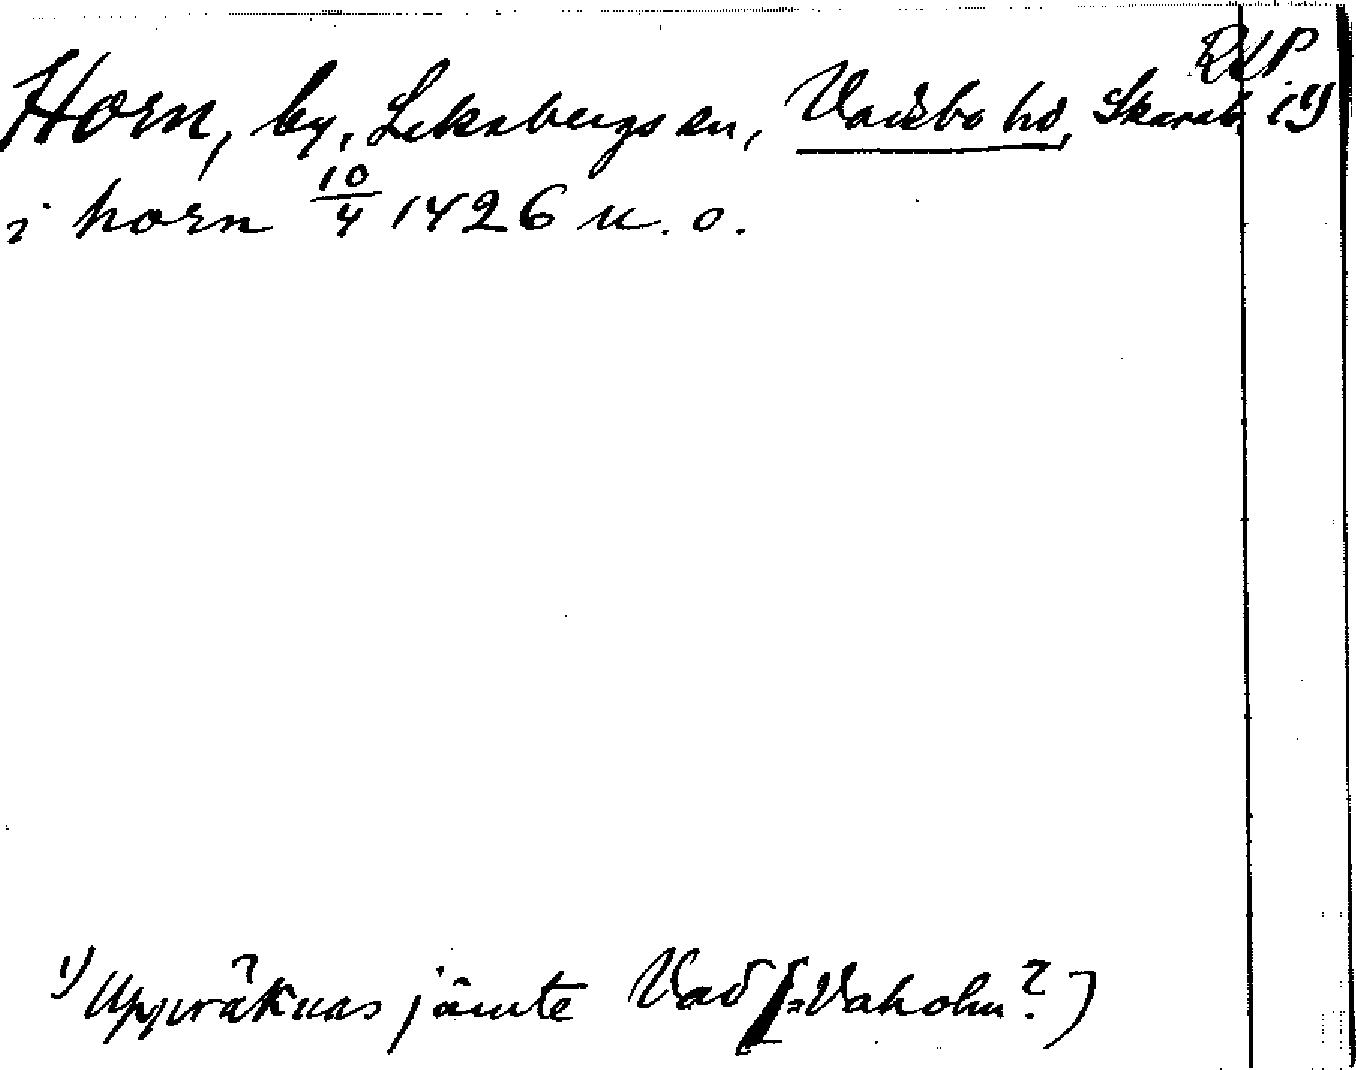 RKP
Horn, by, Leksbergs sn, Vadsbo hd, Skarab.
i horn 10/4 1426 u. o.
1) Uppräknas jämte Vad [= Vaholm?)